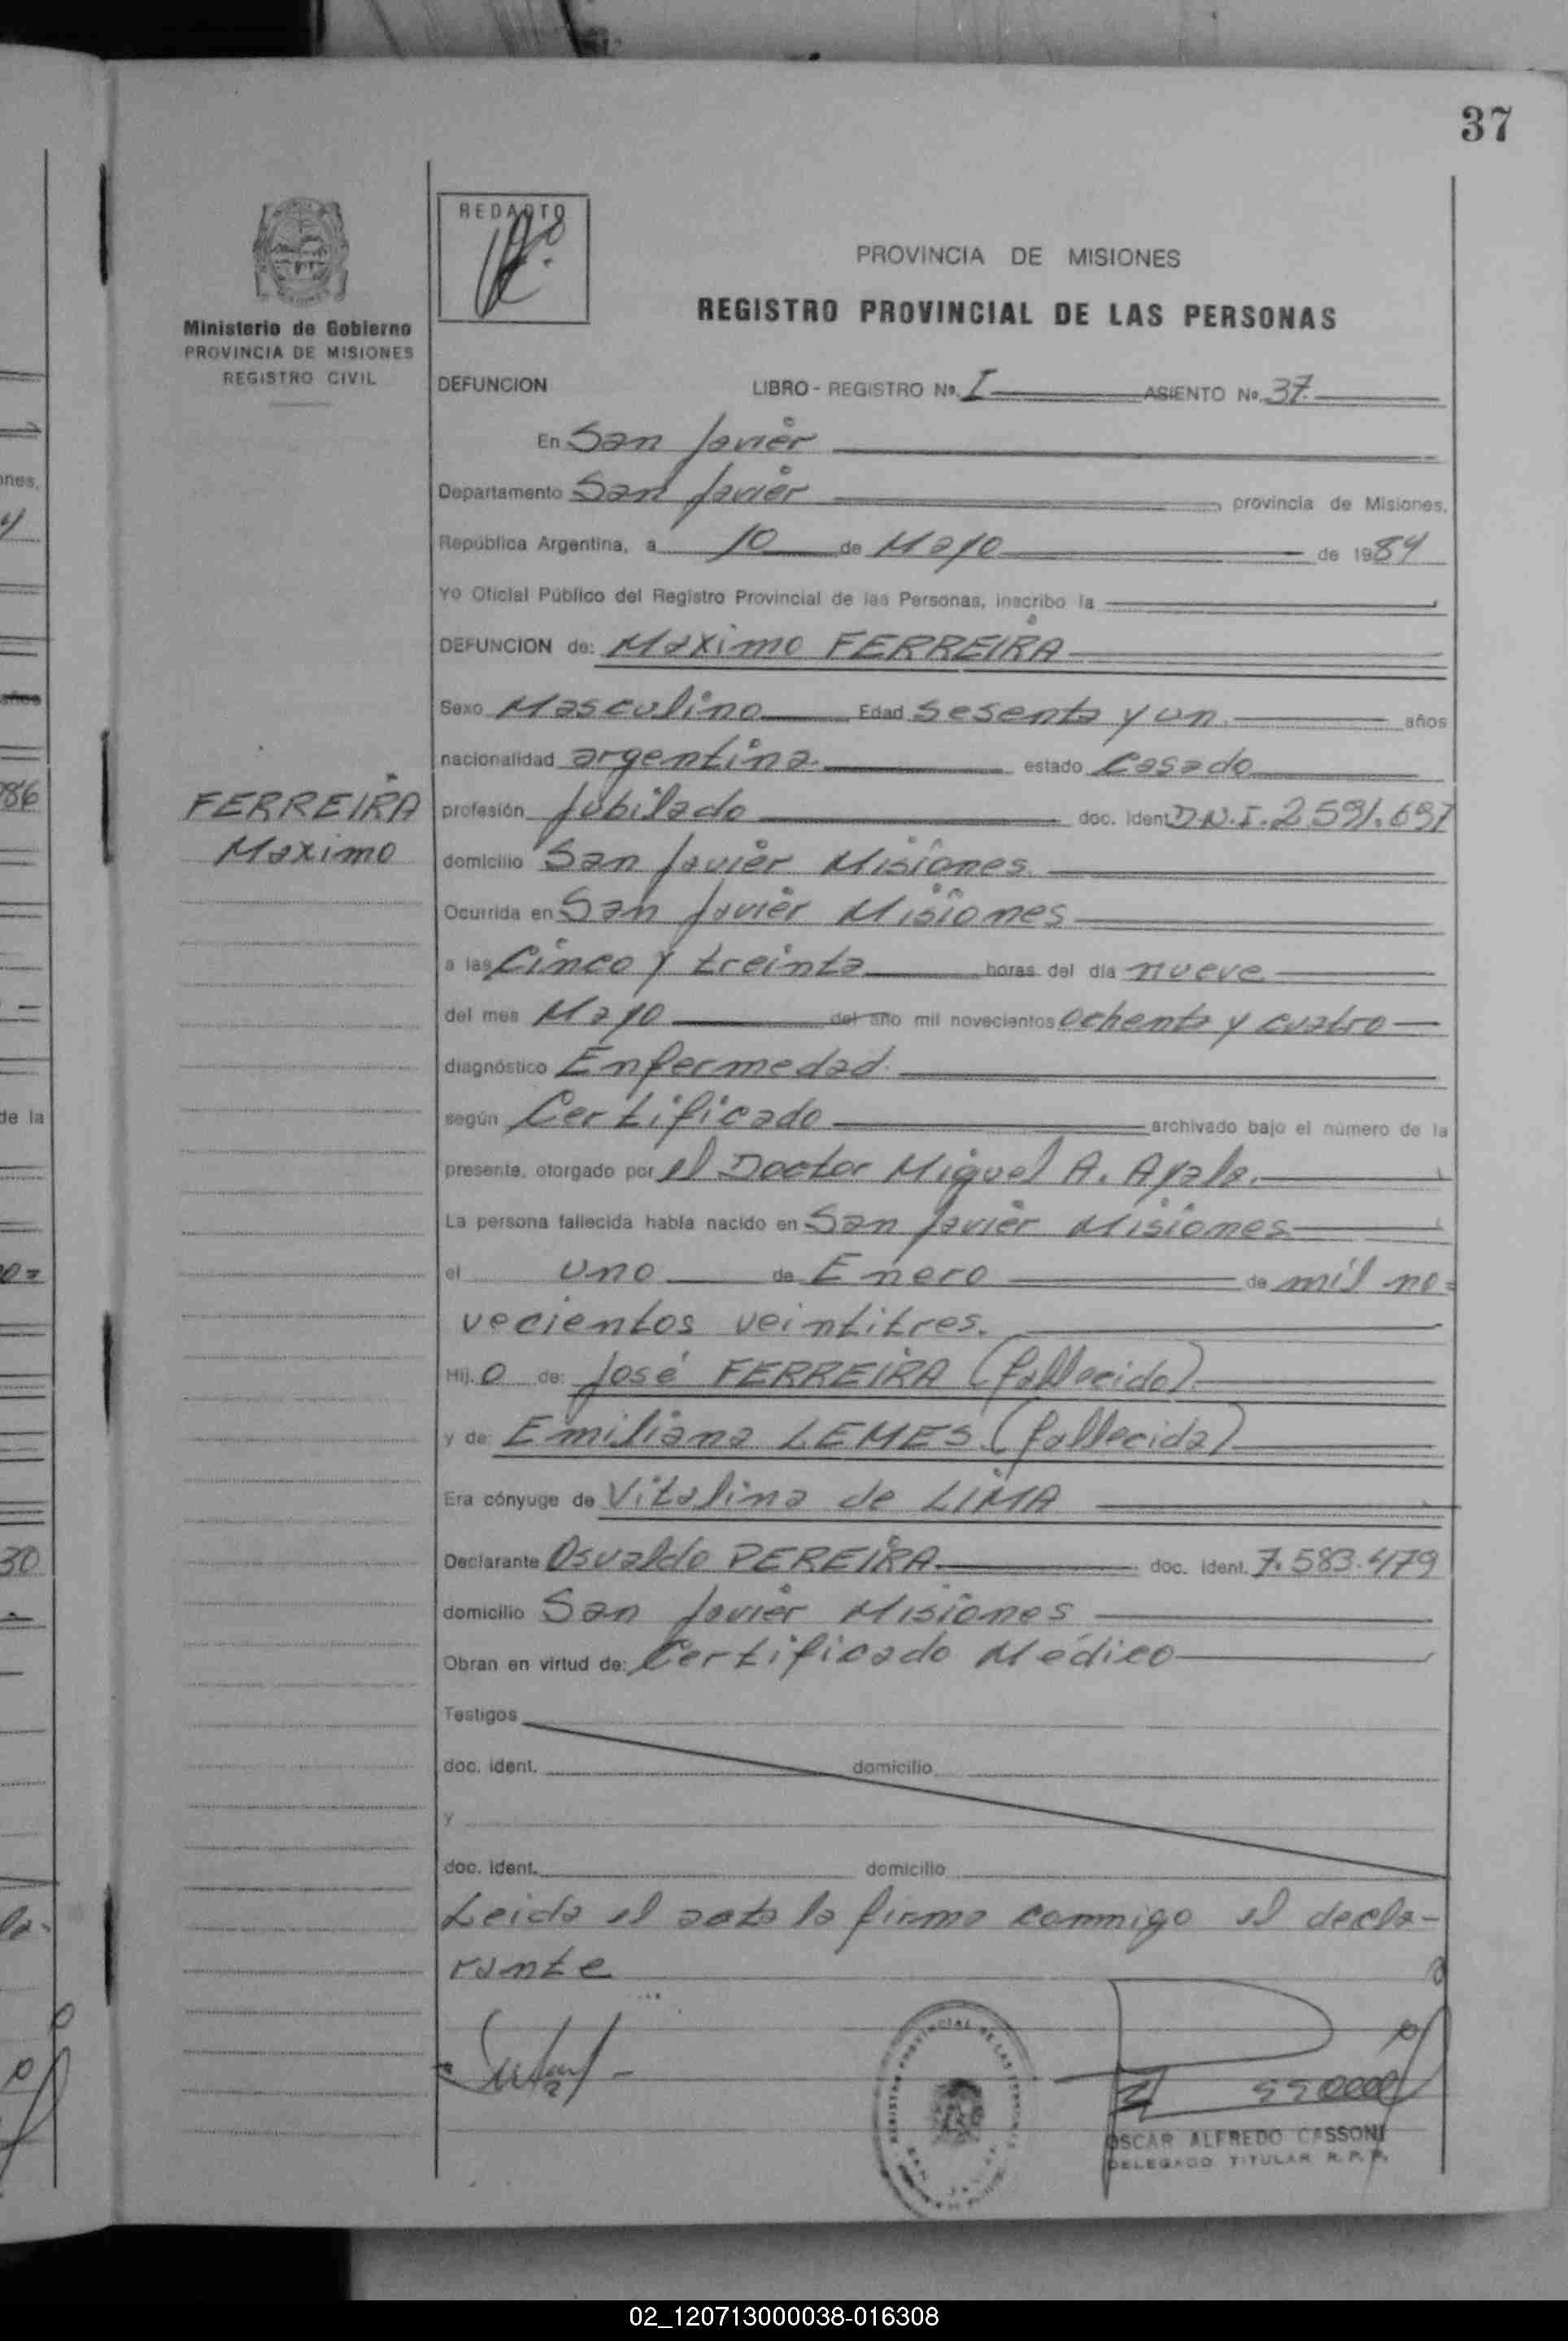 37
REDACTO
PROVINCIA DE MISIONES
REGISTRO PROVINCIAL DE LAS PERSONAS
Ministerio de Gobierno
PROVINCIA DE MISIONES
REGISTRO CIVIL
DEFUNCION LIBRO - REGISTRO Nº. I ASIENTO Nº. 37.
En San Javier
Departamento San Javier, provincia de Misiones,
República Argentina, a 10 de Mayo de 1984
Yo Oficial Público del Registro Provincial de las Personas, inscribo la
DEFUNCION de: Maximo FERREIRA
Sexo Masculino Edad sesenta y un años
nacionalidad argentina. estado Casado
FERREIRA
Maximo
profesión Jubilado doc. ident. D.N.I. 2.591.691
domicilio San Javier Misiones.
Ocurrida en San Javier Misiones
a las Cinco y treinta horas del día nueve
del mes Mayo del año mil novecientos Ochenta y cuatro
diagnóstico Enfermedad.
según Certificado archivado bajo el número de la
presente, otorgado por el Doctor Miguel A. Ayala.
La persona fallecida había nacido en San Javier Misiones
el uno de Enero de mil no=
vecientos veintitres.
Hij o de: José FERREIRA (fallecido)
y de: Emiliana LEMES. (fallecida)
Era cónyuge de Vitalina de LIMA
Declarante Osvaldo PEREIRA. doc. ident. 7.583.479
domicilio San Javier Misiones
Obran en virtud de: Certificado Médico
Testigos
doc. ident. domicilio
y
doc. ident. domicilio
Leida el acta la firma conmigo el decla-
rante
OSCAR ALFREDO CASSONI
DELEGADO TITULAR R.P.P.
02_120713000038-016308